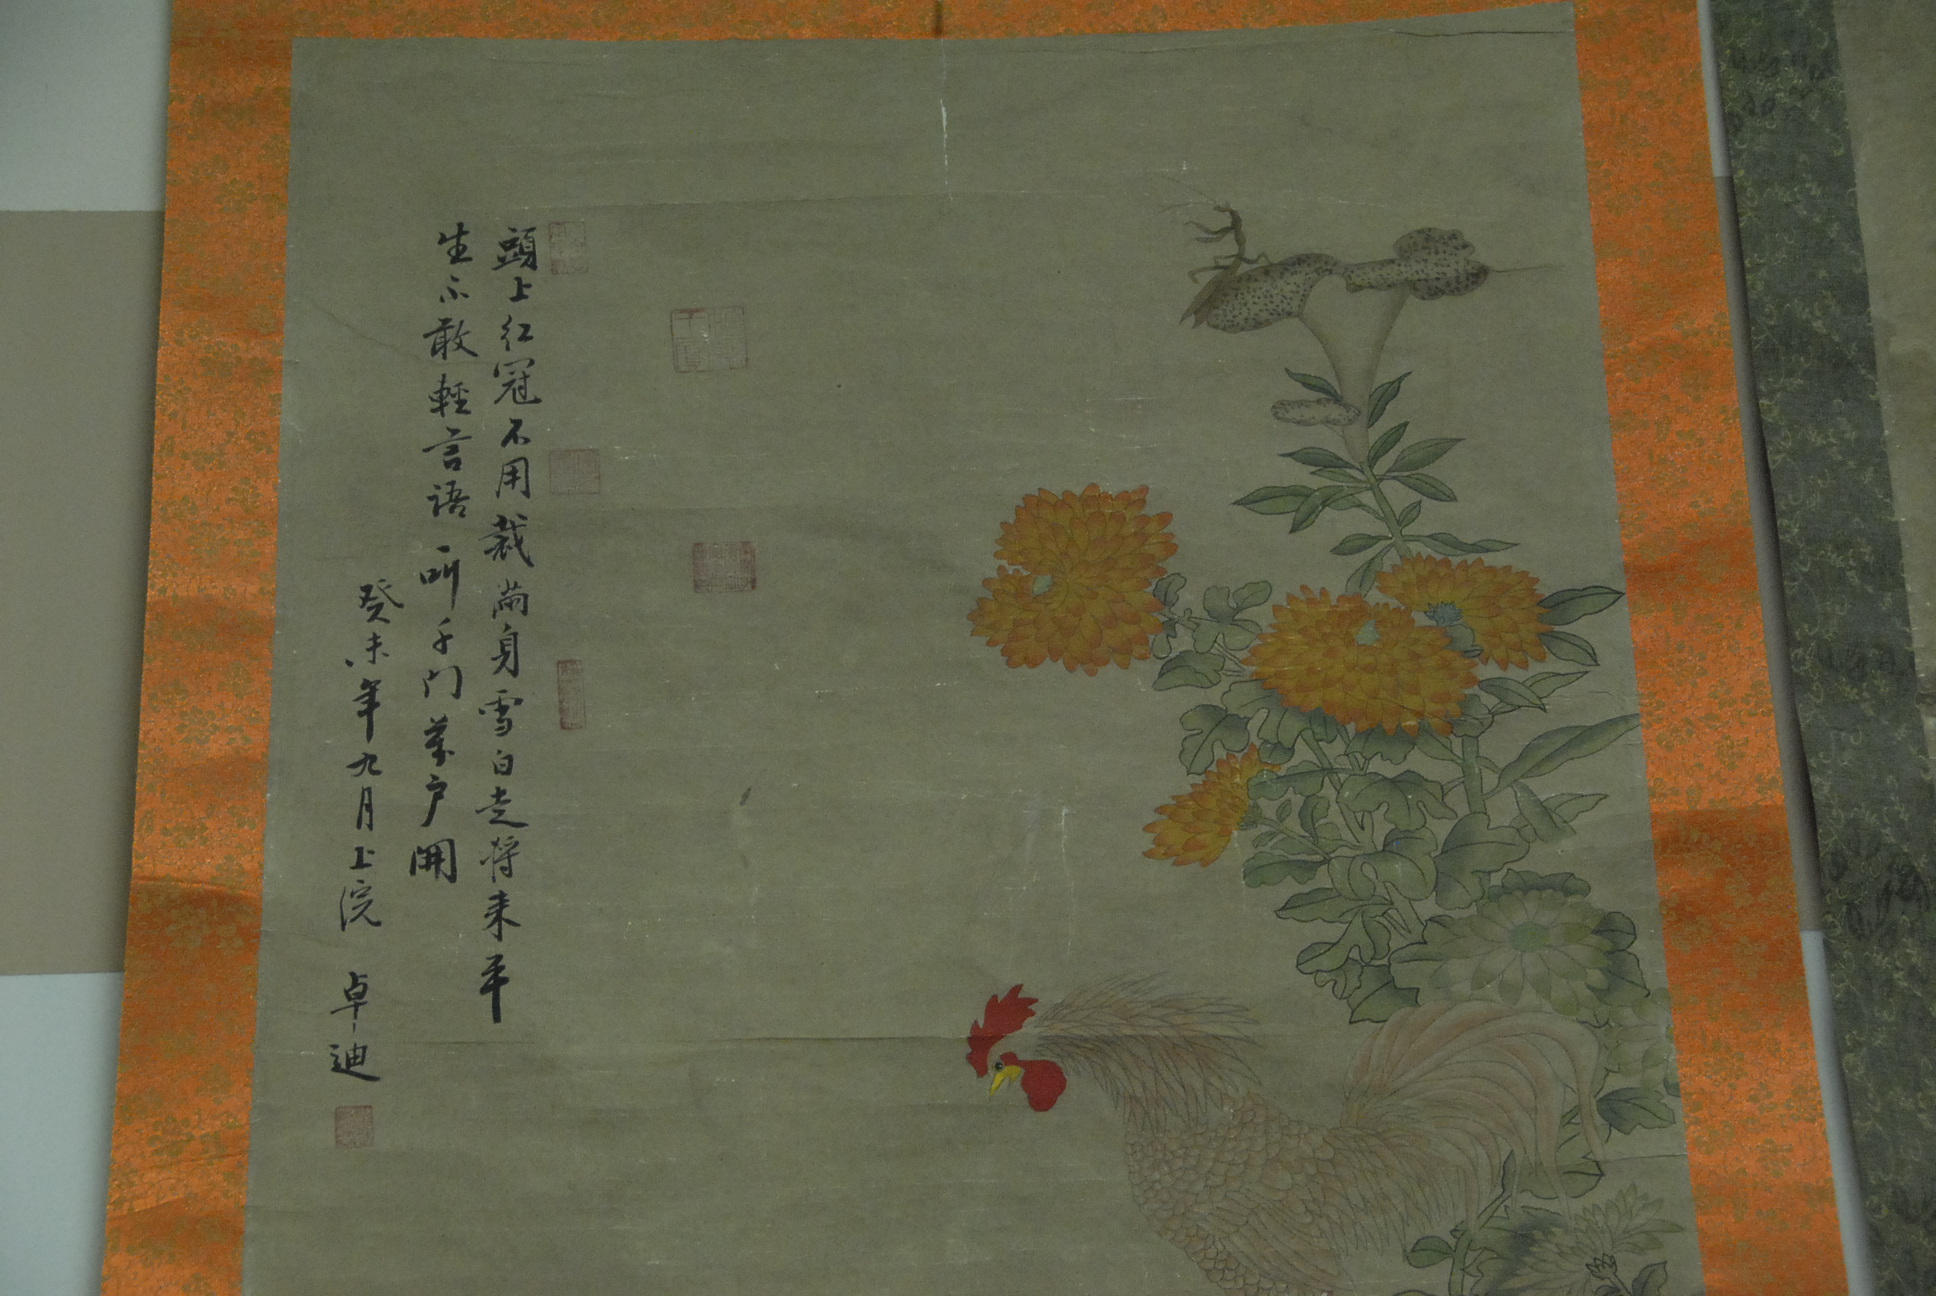 頭上紅冠不用裁滿身雪白走將来平
生不敢輕言語叫千門萬户開
癸未年九月上浣 卓迪